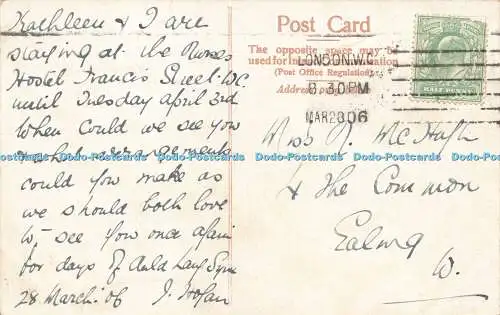 Kathleen & I are
staying at the Nurses
Hostel Francis Street. W.C.
until Tuesday April 3rd
When could we see you
& what arrangements
could you make as
we should both love
to see you once again
for days of Auld Lang Syne
28 March. 06 J. Hogan
Post Card
The opposite space may be
used for
(Post Office Regulation)
Address
LONDON. W.C.
6.30 PM
MAR 28 06
HALF PENNY
Miss
4 The Common
Ealing
W.
Dodo-Postcards Dodo-Postcards Dodo-Postcards Dodo-Postcards Dodo-Postcards Dodo-Postcards